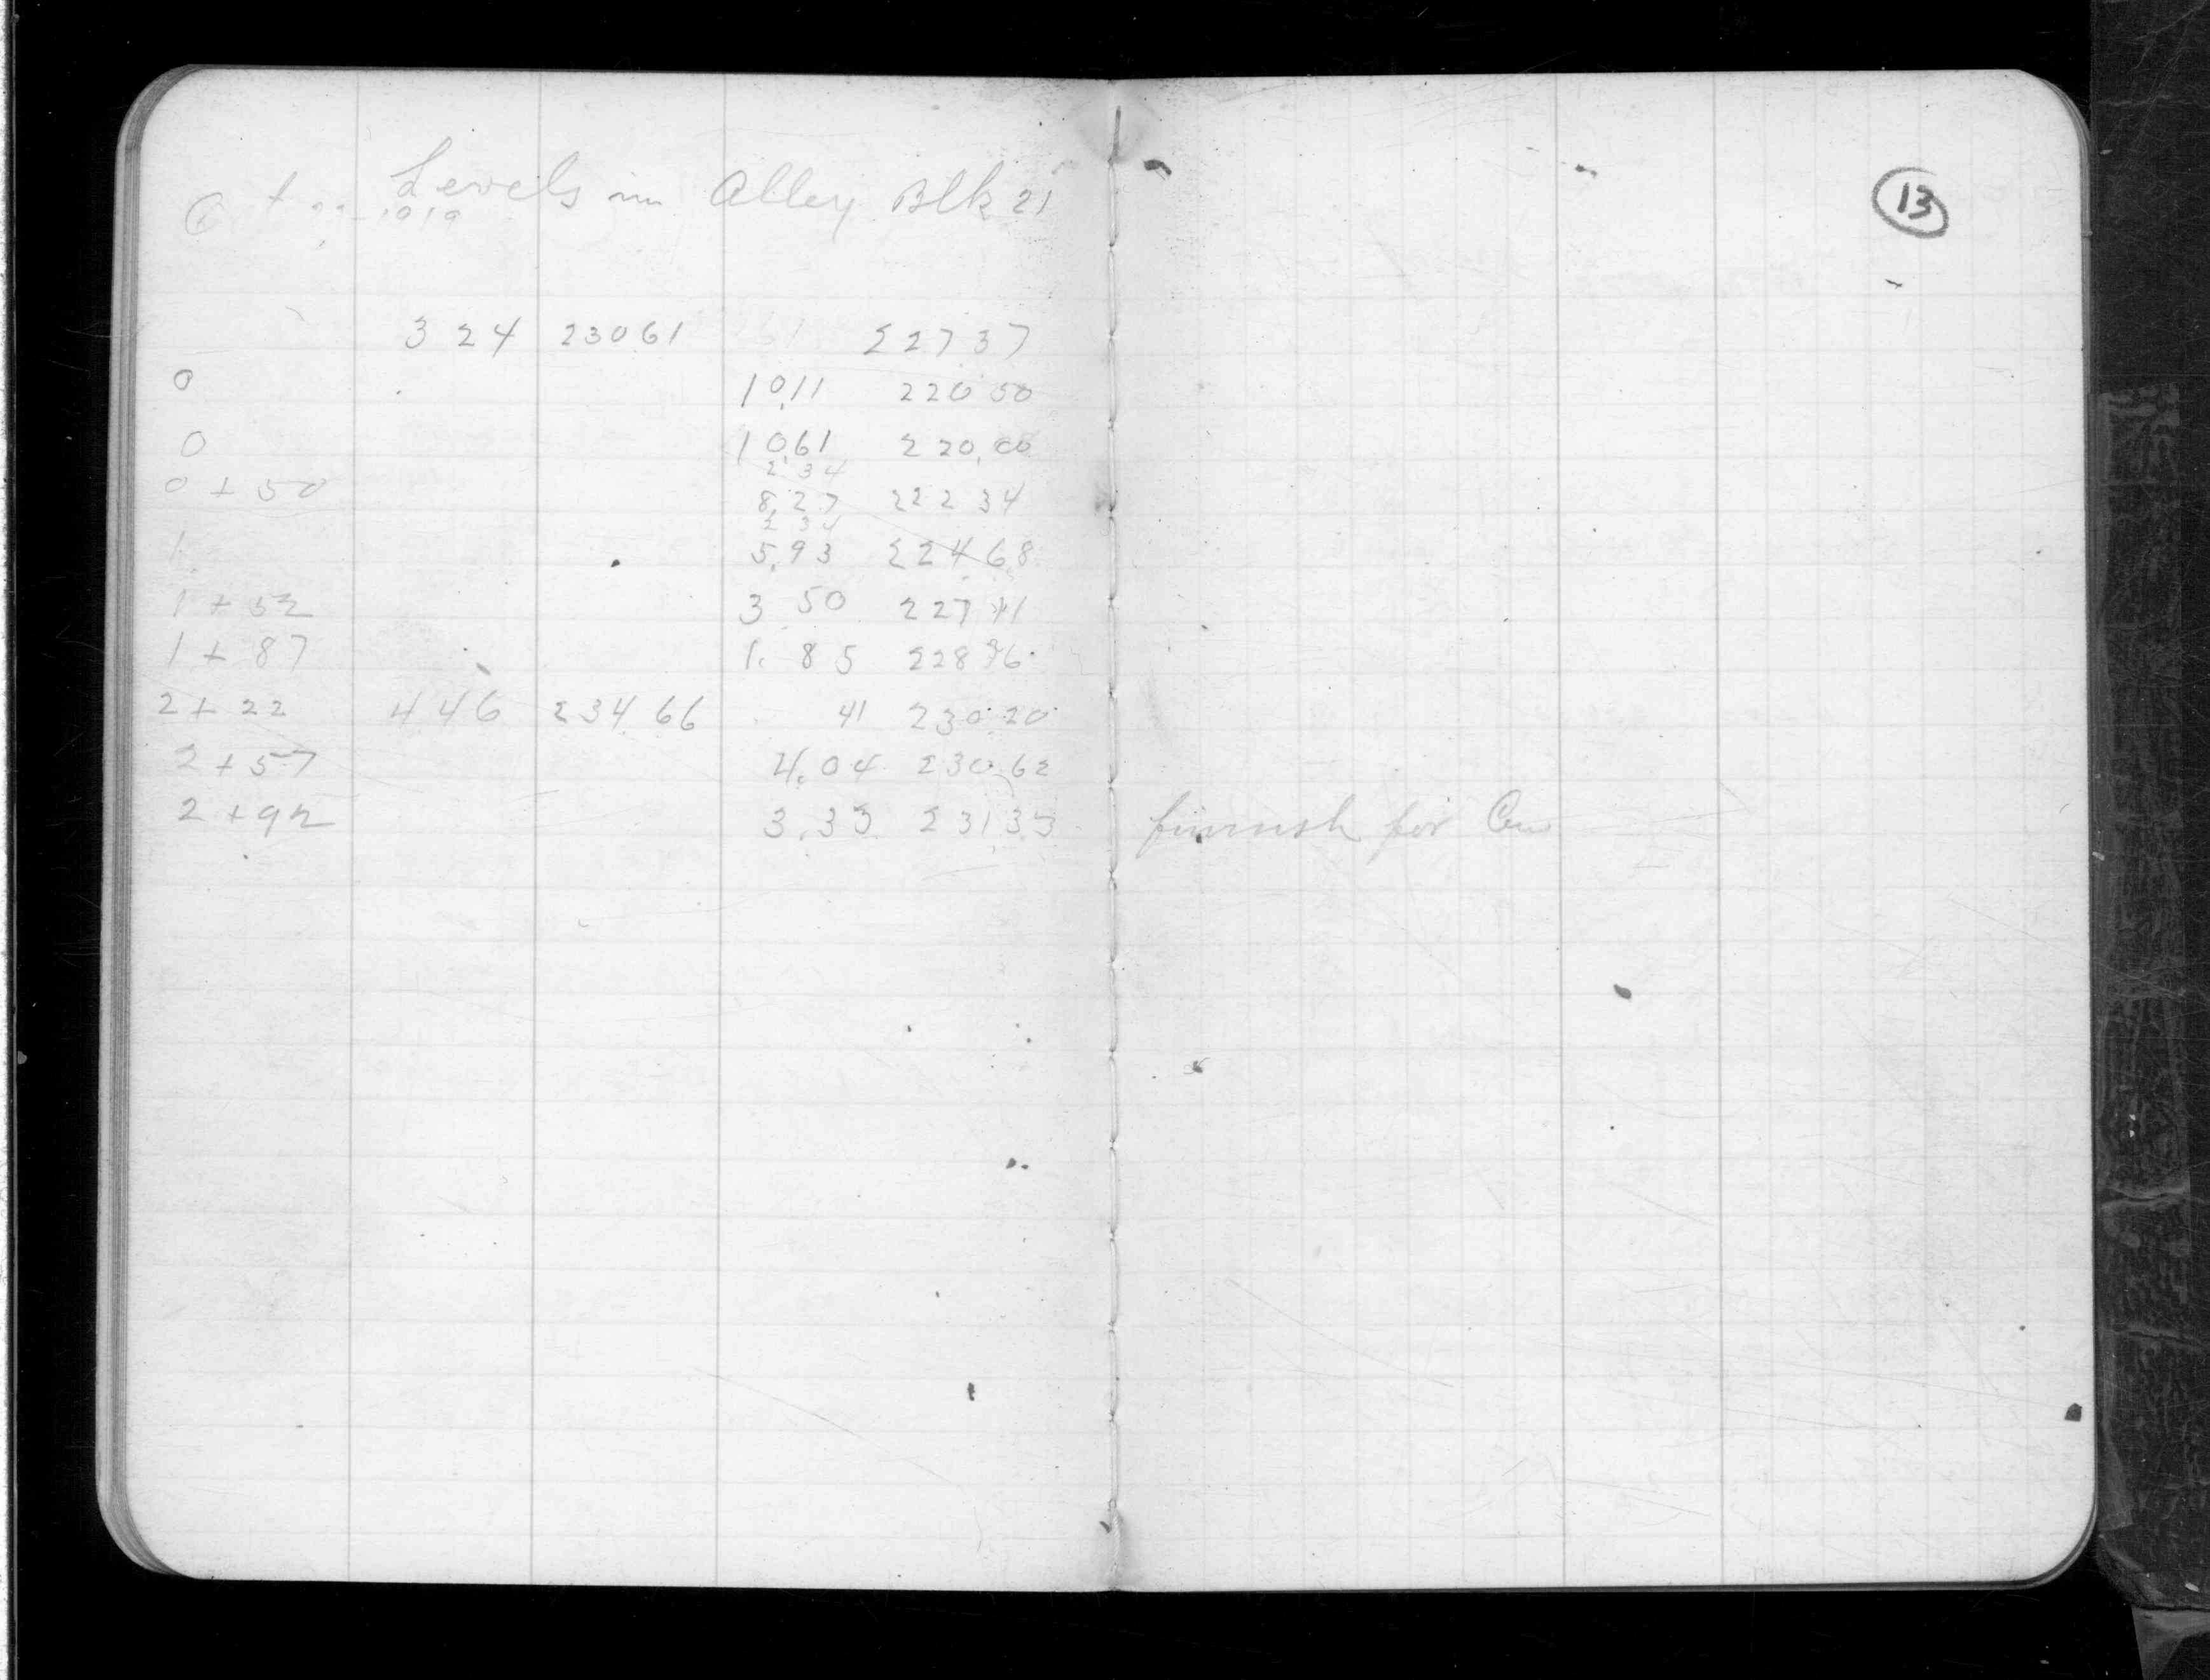 Levels in Alley Blk 21
13
3 24 230 61 227 37
0 10.11 220 50
0 10.61 220.00
2 34
0 + 50 8.27 222 34
2 34
1 5.93 224 68
1 + 52 3 50 227 11
1 + 87 1. 85 228 76
2 + 22 4 46 234.66 41 230.20
2 + 57 4.04 230.62
2 + 92 3.33 231.33 finnish for